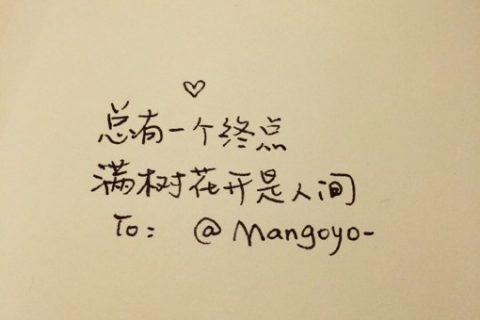 ♡
总有一个终点
满树花开是人间
To: @Mangoyo-